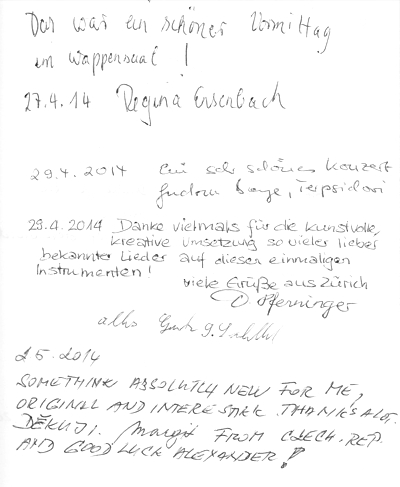 Das war ein schöner Vormittag
im Wappensaal!
27.4.14 Regina
29.4.2014 Ein sehr schönes Konzert
29.4.2014 Danke vielmals für die kunstvolle,
kreative Umsetzung so vieler lieber
bekannter Lieder auf diesen einmaligen
Instrumenten!
viele Grüße aus Zürich
D. Pfenninger
alles Gute
2 5. 2014
SOMETHINK ABSOLUTLY NEW FOR ME,
ORIGINEL AND INTERESTAK. THANK'S A LOT.
DĚKUJI. Margit FROM CZECH. REP.
AND GOOD LUCK ALEXANDER!